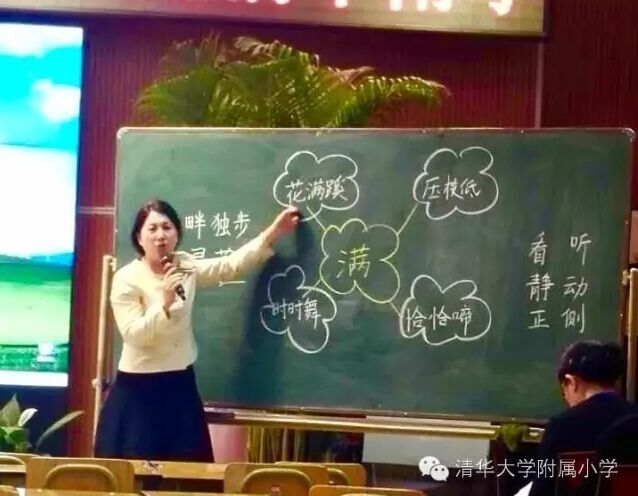 花满蹊
压枝低
畔独步
满
时时舞
恰恰啼
看 听
静 动
正 侧
清华大学附属小学